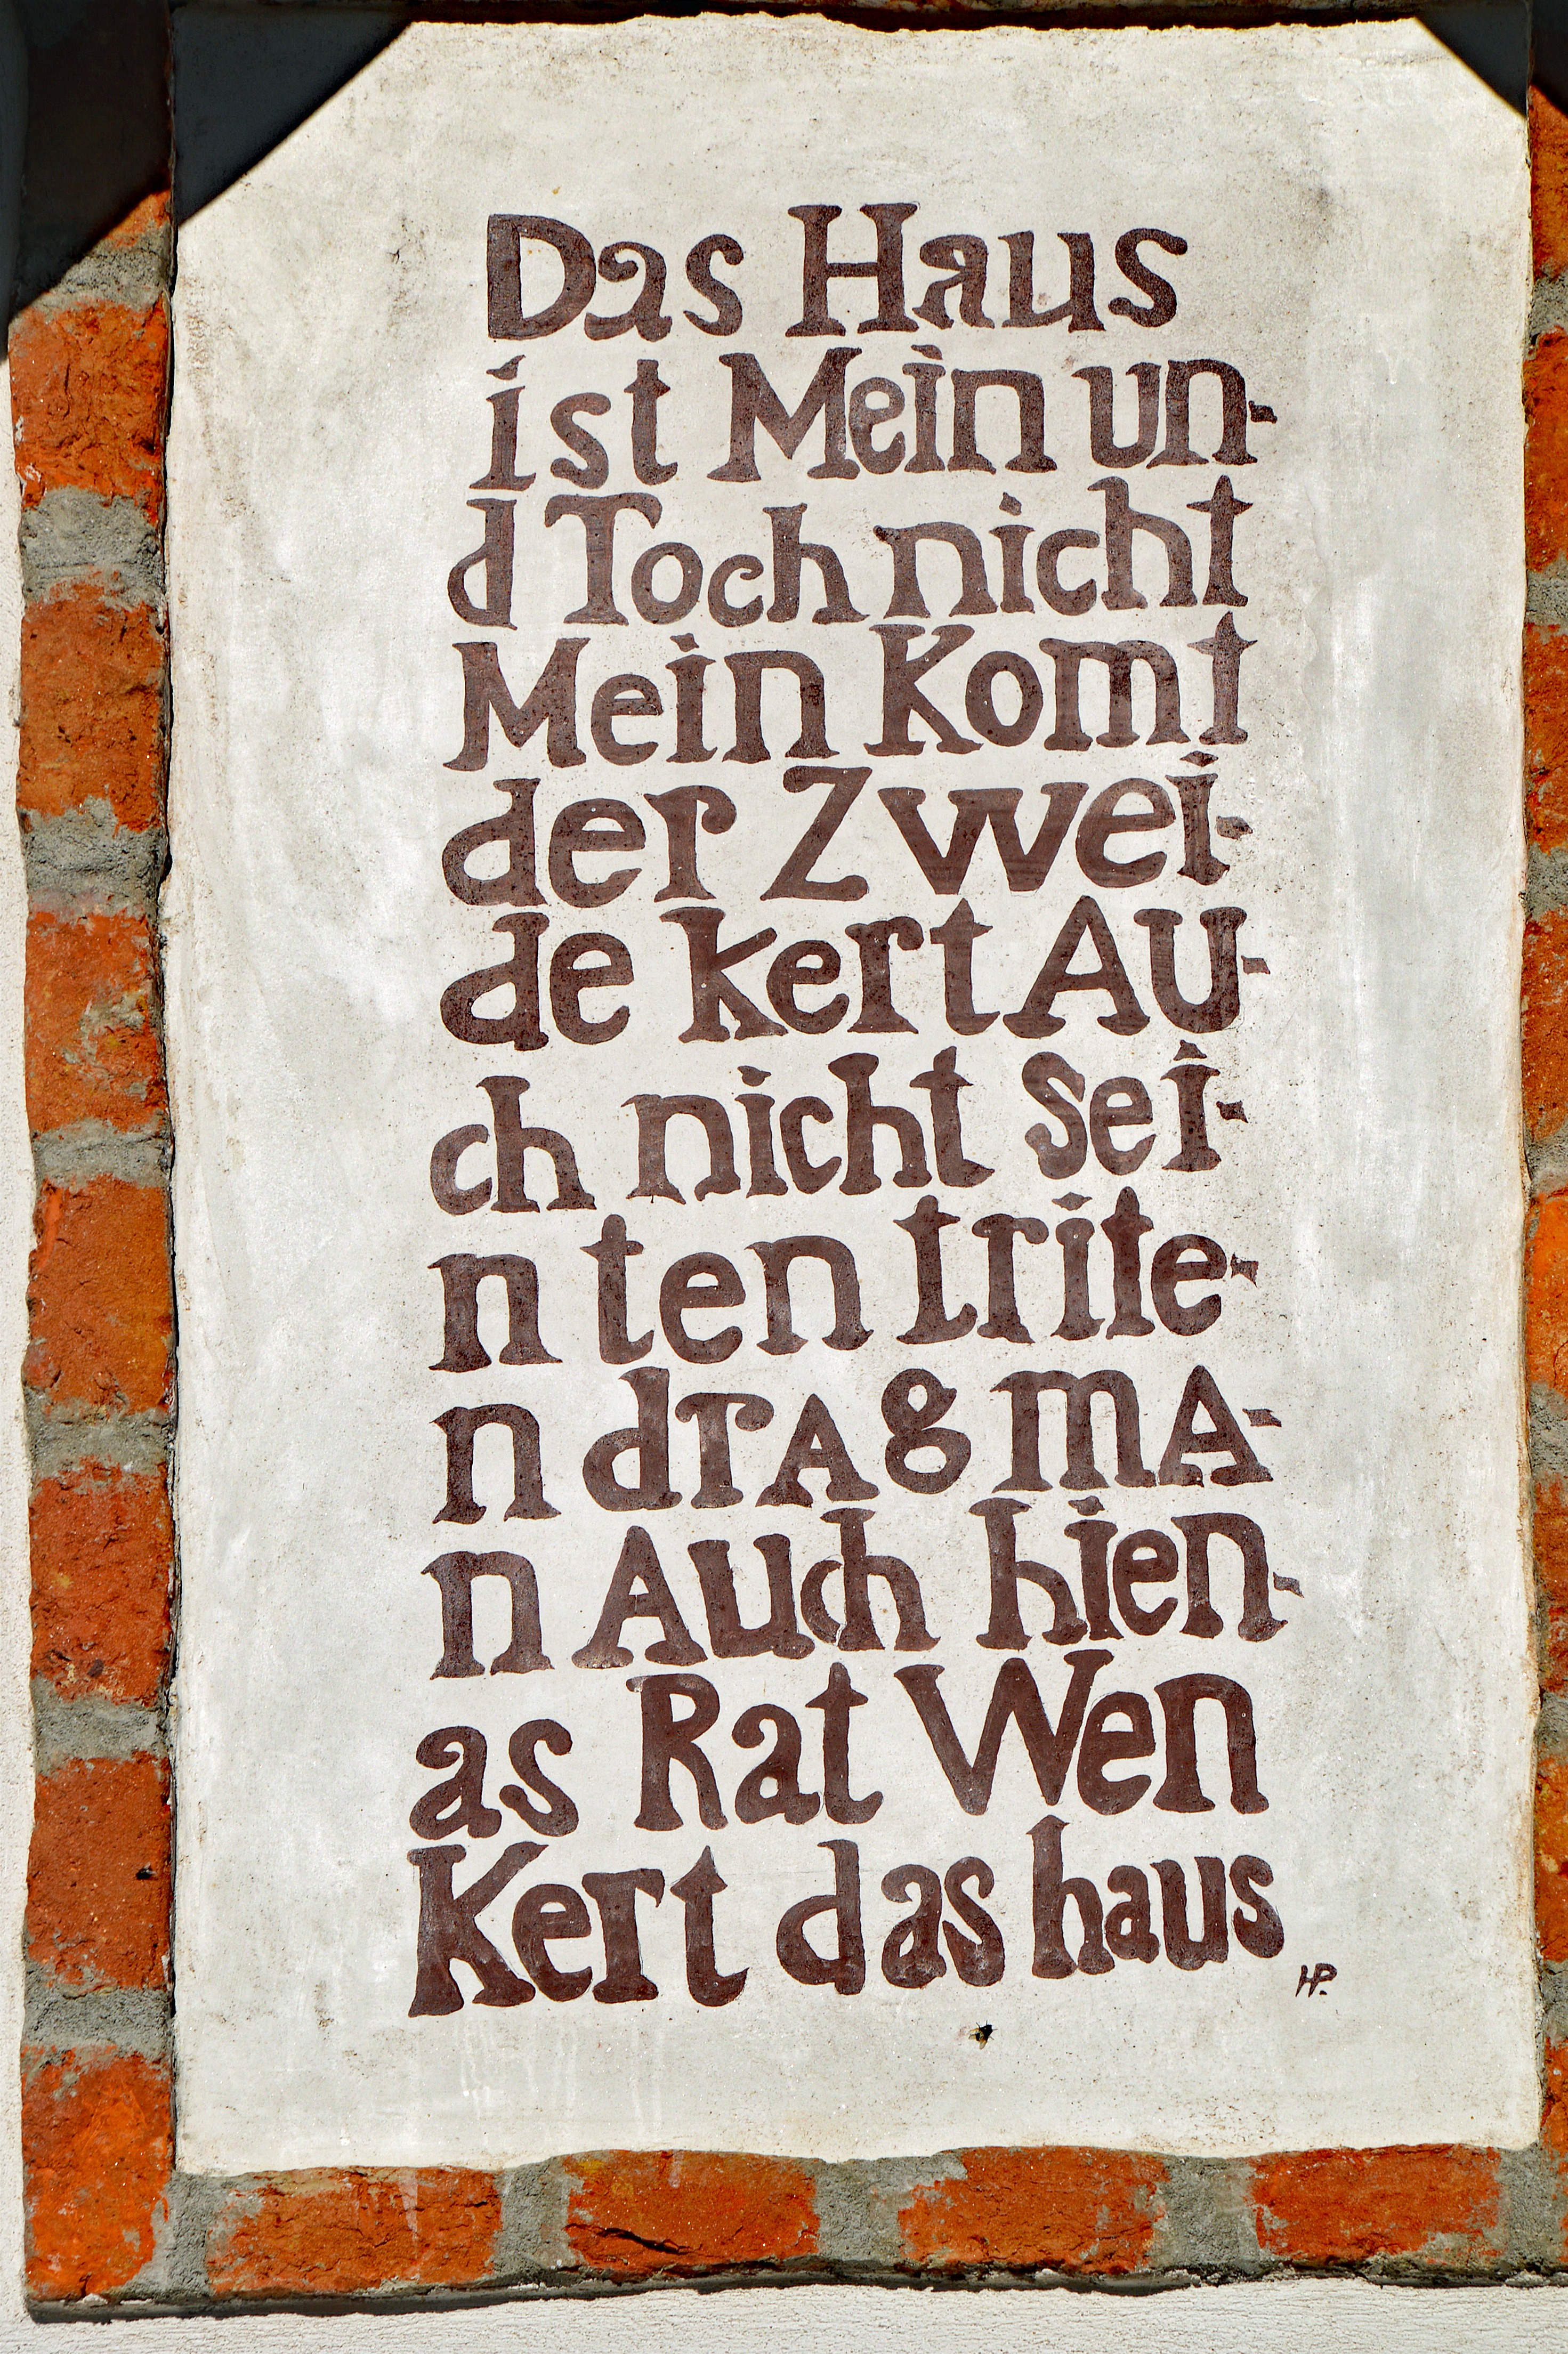 Das Haus
ist Mein un-
d Toch nicht
Mein Komt
der Zwei-
de kert AU-
ch nicht Sei-
n ten trite-
n drAg mA-
n Auch hien-
as Rat Wen
Kert das haus
HP.